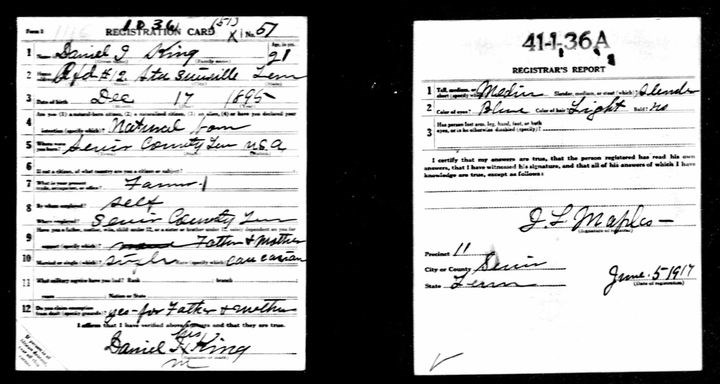 1036
(51)
Form 1
REGISTRATION CARD
No. 51
1
Daniel I King
Age, in yrs.
21
2
Rfd #12 Sevierville Tenn
3
Date of birth
Dec 17 1895
Are you (1) a natural-born citizen, (2) a naturalized citizen, (3) an alien, (4) or have you declared your
4
intention (specify which)?
Natural born
5
Where were you born?
Sevier County Tenn U.S.A
6
If not a citizen, of what country are you a citizen or subject?
7
What is your present trade, occupation, or office?
Farmer
8
By whom employed?
Self
Where employed?
Sevier County Tenn
Have you a father, mother, wife, child under 12, or a sister or brother under 12, solely dependent on you for
9
support (specify which)?
Father & Mother
10
Married or single (which)?
Single
Race (specify which)?
Caucasian
11
What military service have you had? Rank
branch
years
Nation or State
12
Do you claim exemption from draft (specify grounds)?
yes-for Father & Mother
I affirm that I have verified above answers and that they are true.
his
Daniel I X King
m
41-1-36 A
REGISTRAR'S REPORT
1
Tall, medium, or short (specify which)?
Medium
Slender, medium, or stout (which)?
Slender
2
Color of eyes?
Blue
Color of hair?
Light
Bald?
no
3
Has person lost arm, leg, hand, foot, or both eyes, or is he otherwise disabled (specify)?
I certify that my answers are true, that the person registered has read his own
answers, that I have witnessed his signature, and that all of his answers of which I have
knowledge are true, except as follows:
J. L. Maples
(Signature of registrar)
Precinct 11
City or County Sevier
State Tenn
June 5-1917
(Date of registration)